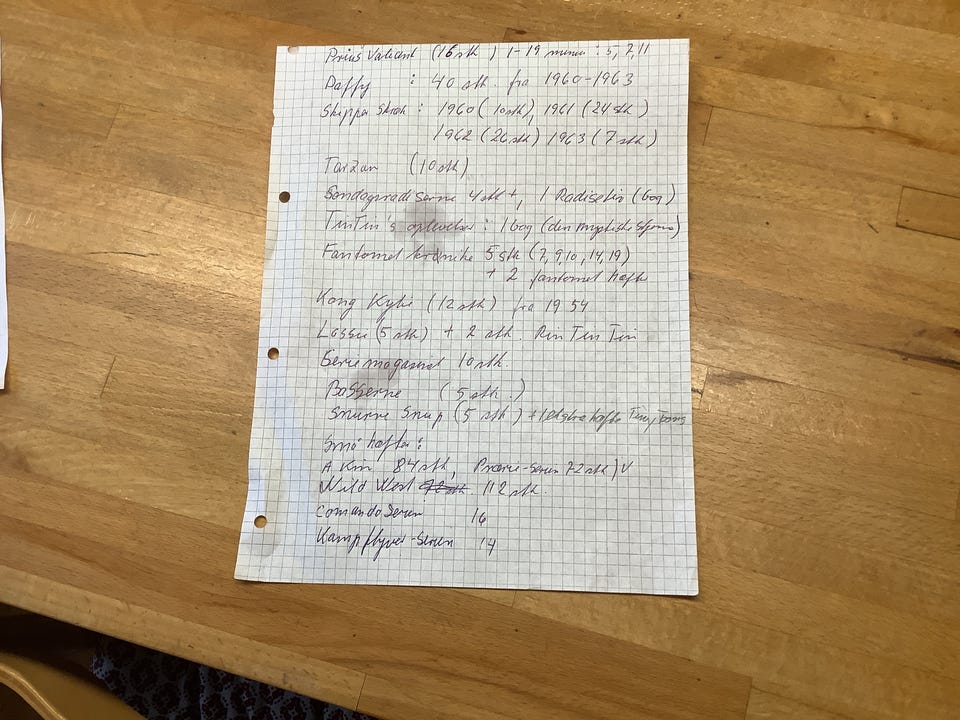 Prins Valiant (16 stk) 1-19 minus : 5, 7, 11
Daffy : 40 stk. fra 1960-1963
Skipper Skræk : 1960 (10 stk), 1961 (24 stk)
1962 (26 stk) 1963 (7 stk)
Tarzan (10 stk)
Søndagsradiserne 4 stk +, 1 Radiserin (bog)
TinTin's oplevelser : 1 bog (den mystiske stjerne)
Fantomet krønike 5 stk (7, 9, 10, 14, 19)
+ 2 fantomet hæfte
Kong Kylie (12 stk) fra 1954
Lassie (5 stk) + 2 stk. Rin Tin Tin
Seriemagasinet 10 stk.
Basserne (5 stk.)
Snurre Snup (5 stk) + 1 ekstra hæfte Tiny Toons
Små hæfter :
A Kim 84 stk, Prærie-Serien 72 stk) V
Wild West 112 stk.
Comando Serien 16
Kampflyver-Serien 14